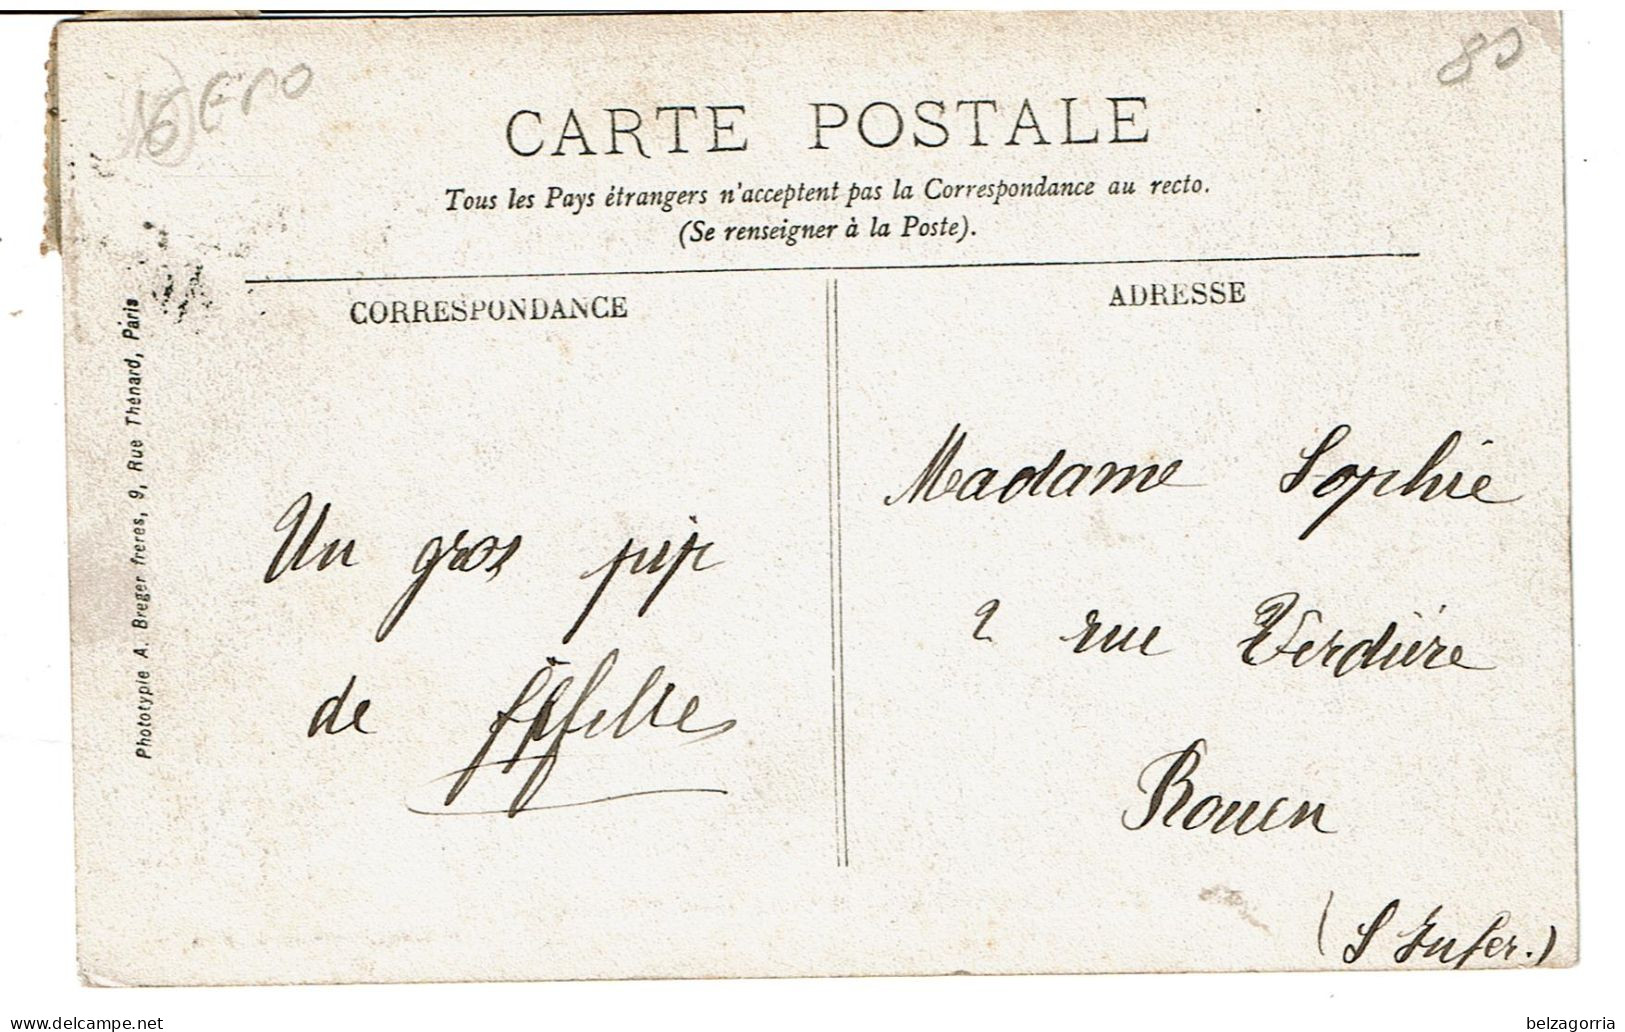 80
16
CARTE POSTALE
Tous les Pays étrangers n'acceptent pas la Correspondance au recto.
(Se renseigner à la Poste).
CORRESPONDANCE
Un gros pip
de
ADRESSE
Madame Sophie
2 rue Verdière
Rouen
(S Infer.)
Phototypie A. Breger freres, 9, Rue Thénard, Paris
belzagorria